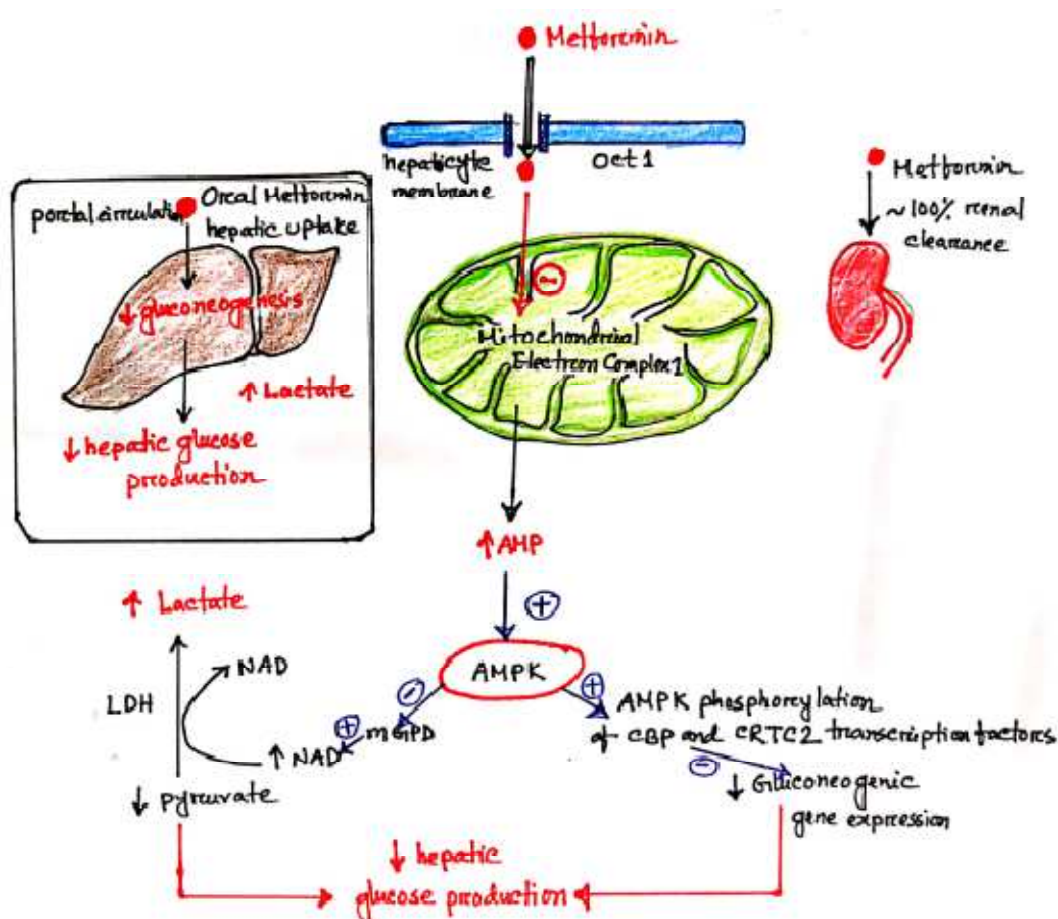 Metformin
hepaticyte
membrane
Oct 1
Metformin
~100% renal
clearance
portal circulation
Oral Metformin
hepatic uptake
↓ gluconeogenesis
↑ Lactate
↓ hepatic glucose
production
⊖
Mitochondrial
Electron Complex 1
↑ AMP
⊕
AMPK
↑ Lactate
NAD
LDH
↑ NAD
↓ pyruvate
⊖
⊕
mGPD
⊕
AMPK phosphorylation
of CBP and CRTC2 transcription factors
⊖
↓ Gluconeogenic
gene expression
↓ hepatic
glucose production